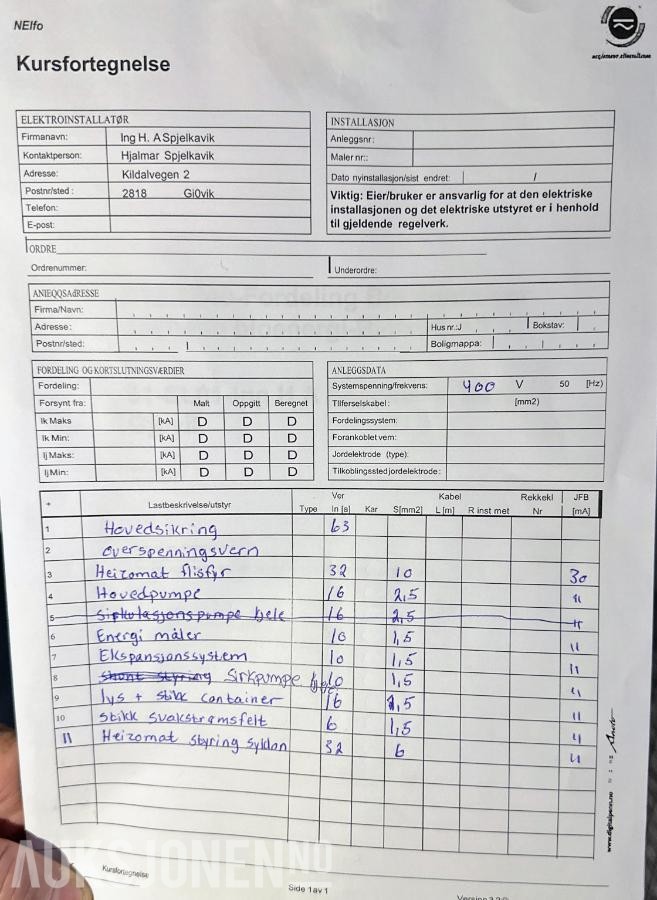 NElfo
Kursfortegnelse
ELEKTROINSTALLATØR
Firmanavn: Ing H. A Spjelkavik
Kontaktperson: Hjalmar Spjelkavik
Adresse: Kildalvegen 2
Postnr/sted: 2818 Gi0vik
Telefon:
E-post:
INSTALLASJON
Anleggsnr:
Maler nr::
Dato nyinstallasjon/sist endret: /
Viktig: Eier/bruker er ansvarlig for at den elektriske
installasjonen og det elektriske utstyret er i henhold
til gjeldende regelverk.
ORDRE
Ordrenummer: Underordre:
ANIEQQSAdRESSE
Firma/Navn:
Adresse: Hus nr.:J Bokstav:
Postnr/sted: Boligmappa:
FORDELING OG KORTSLUTNINGSVÆRDIER
Fordeling:
Forsynt fra: Malt Oppgitt Beregnet
Ik Maks [kA] D D D
Ik Min: [kA] D D D
Ij Maks: [kA] D D D
Ij Min: [kA] D D D
ANLEGGSDATA
Systemspenning/frekvens: 400 V 50 [Hz]
Tilferselskabel: [mm2]
Fordelingssystem:
Forankoblet vem:
Jordelektrode (type):
Tilkoblingssted jordelektrode:
Ver Kabel Rekkekl JFB
Lastbeskrivelse/utstyr Type In [a] Kar S[mm2] L [m] R inst met Nr [mA]
1 Hovedsikring 63
2 Overspenningsvern
3 Heizomat flisfyr 32 10 30
4 Hovedpumpe 16 2,5 "
5 Sirkulasjonspumpe kjele 16 2,5 "
6 Energi måler 10 1,5 "
7 Ekspansjonssystem 10 1,5 "
8 Shunt styring Sirkpumpe 10 1,5 "
9 lys + stikk container 16 2,5 "
10 Stikk svakstrømsfelt 6 1,5 "
11 Heizomat styring syklon 32 6 "
www.digitalpenn.no
AUKSJONEN.NO
Kursfortegnelse
Side 1 av 1